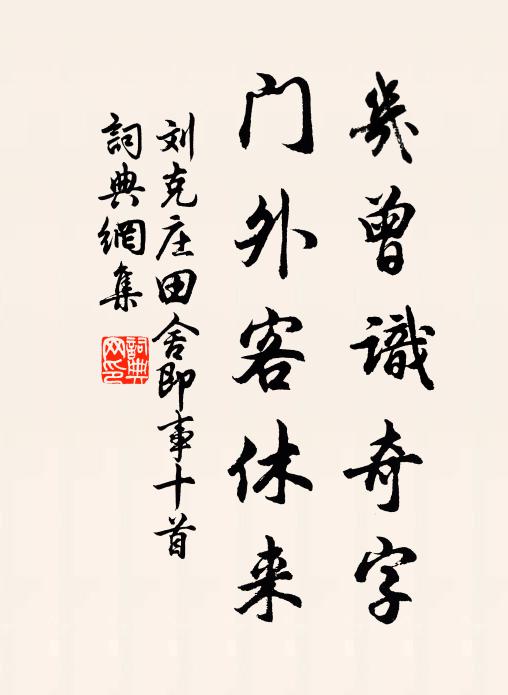 幾曾識奇字
门外客休来
刘克庄田舍即事十首
詞典網集
詞典
网印